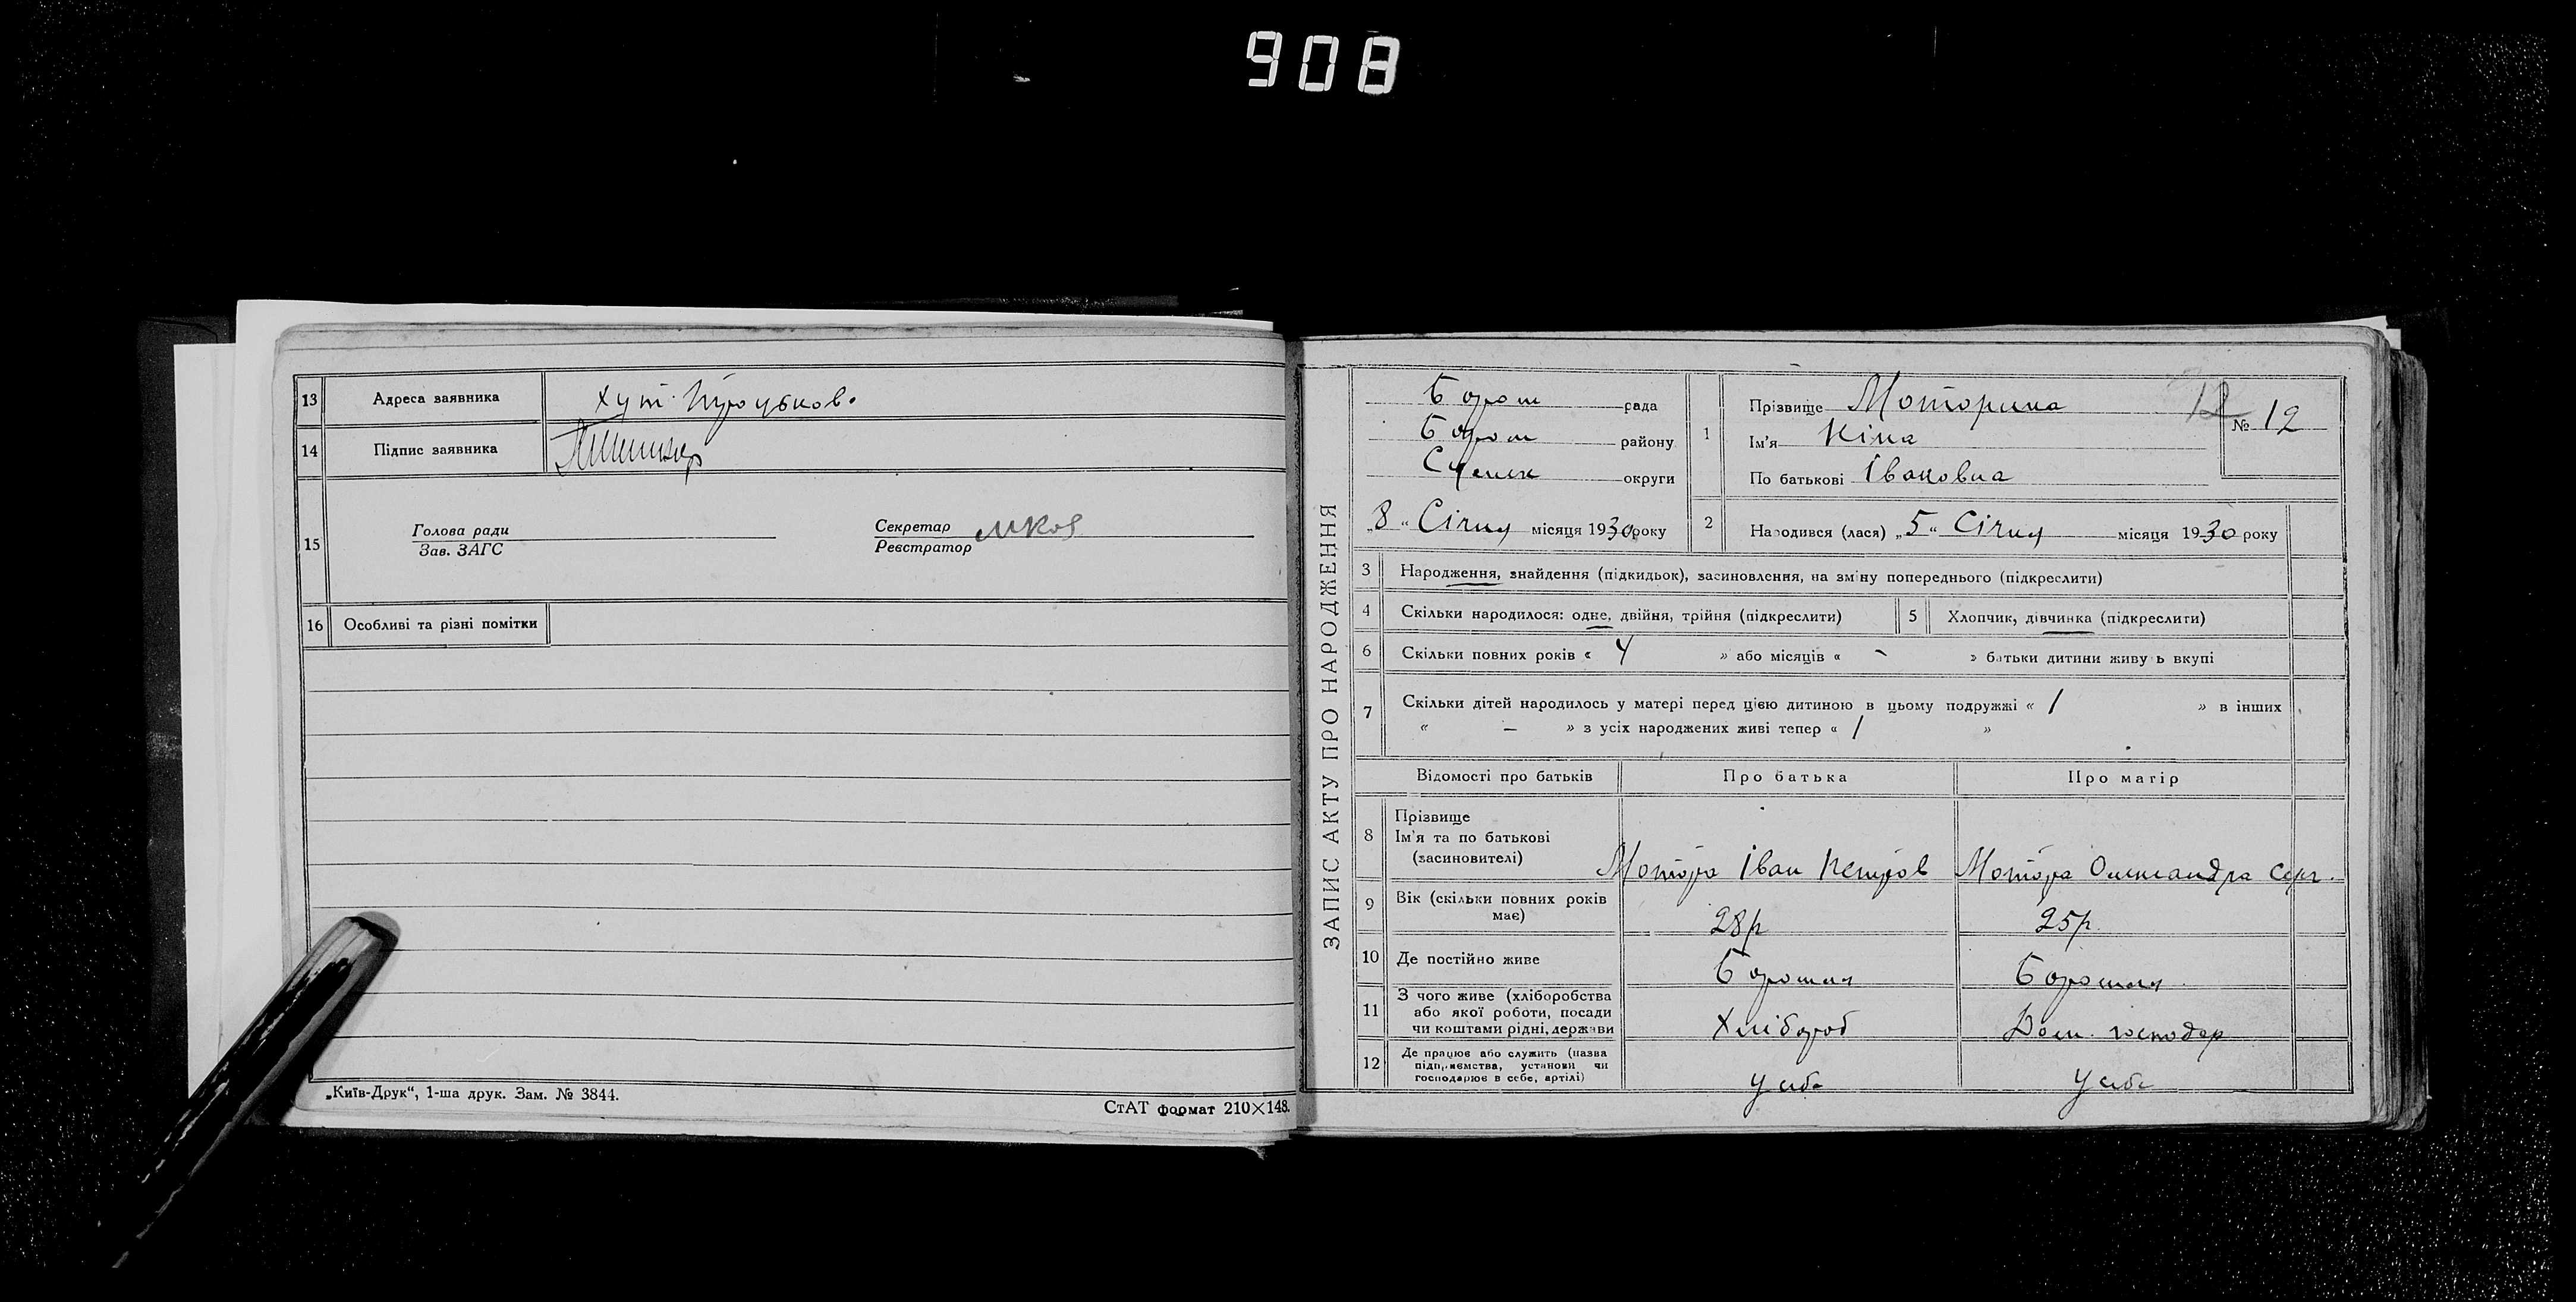 908
13 Адреса заявника хут.
14 Підпис заявника
15 Голова ради
Зав. ЗАГС
Секретар
Реєстратор
16 Особливі та різні помітки
„Київ-Друк“, 1-ша друк. Зам. № 3844.
СтАТ формат 210×148.
ЗАПИС АКТУ ПРО НАРОДЖЕННЯ
Бором рада
Бором району
Сумск округи
„8“ Січня місяця 1930 року
1 Прізвище Моторина
Ім'я Ніна
По батькові Івановна
12
№ 12
2 Народився (лася) „5“ Січня місяця 1930 року
3 Народження, знайдення (підкидьок), засиновлення, на зміну попереднього (підкреслити)
4 Скільки народилося: одне, двійня, трійня (підкреслити)
5 Хлопчик, дівчинка (підкреслити)
6 Скільки повних років « 4 » або місяців « - » батьки дитини живуть вкупі
7 Скільки дітей народилось у матері перед цією дитиною в цьому подружжі « 1 » в інших
« — » з усіх народжених живі тепер « 1 »
Відомості про батьків Про батька Про матір
8 Прізвище
Ім'я та по батькові
(засиновителі)
Мотора Іван Петров Мотора Олександра Серг.
9 Вік (скільки повних років
має)
28р 25р.
10 Де постійно живе Боромля Боромля
11 З чого живе (хліборобства
або якої роботи, посади
чи коштами рідні, держави
Хлібороб Дом. господар
12 Де працює або служить (назва
підприємства, установи чи
господарює в себе, артілі)
У себе У себе